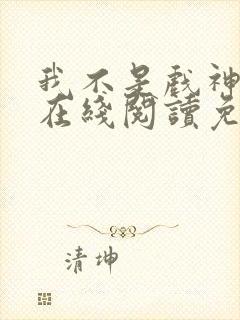 我不是戲神
在綫閱讀免
清坤